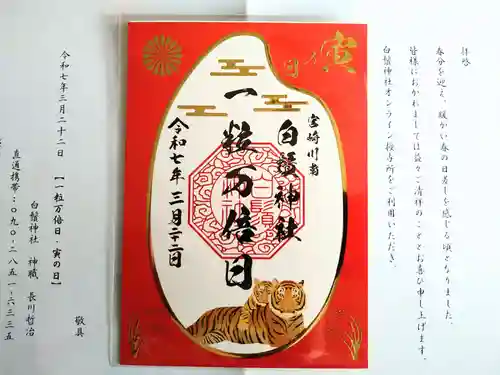 拝啓
春分を迎え、暖かい春の日差しを感じる頃となりました。
皆様におかれましては益々ご清祥のこととお喜び申し上げます。
白鬚神社オンライン授与所をご利用いただき、
寅
宮崎川南
白鬚神社
一粒万倍日
令和七年三月二十二日
敬具
令和七年三月二十二日 【一粒万倍日・寅の日】
白鬚神社 神職 長川哲治
直通携帯：〇九〇-二八五一-六三三五